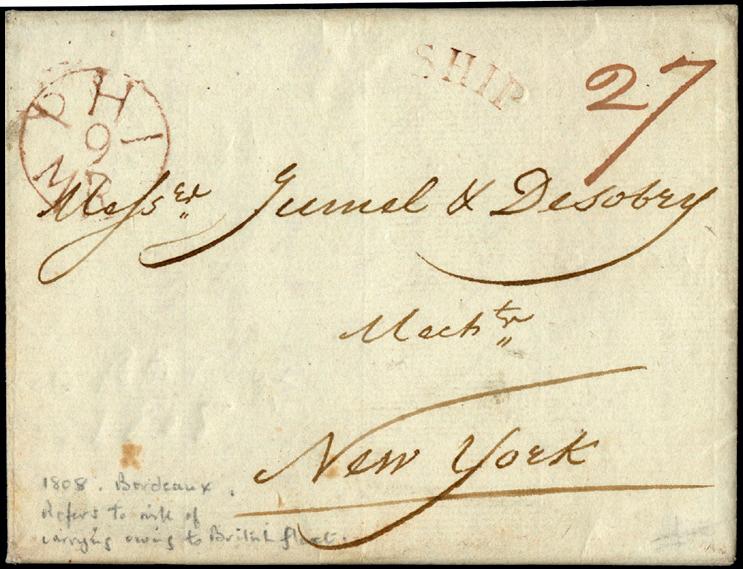 SHIP
27
PHI
9
Messrs Jumel & Desobry
Mechts
New York
1808. Bordeaux.
Refers to risk of
carrying owing to British fleet.